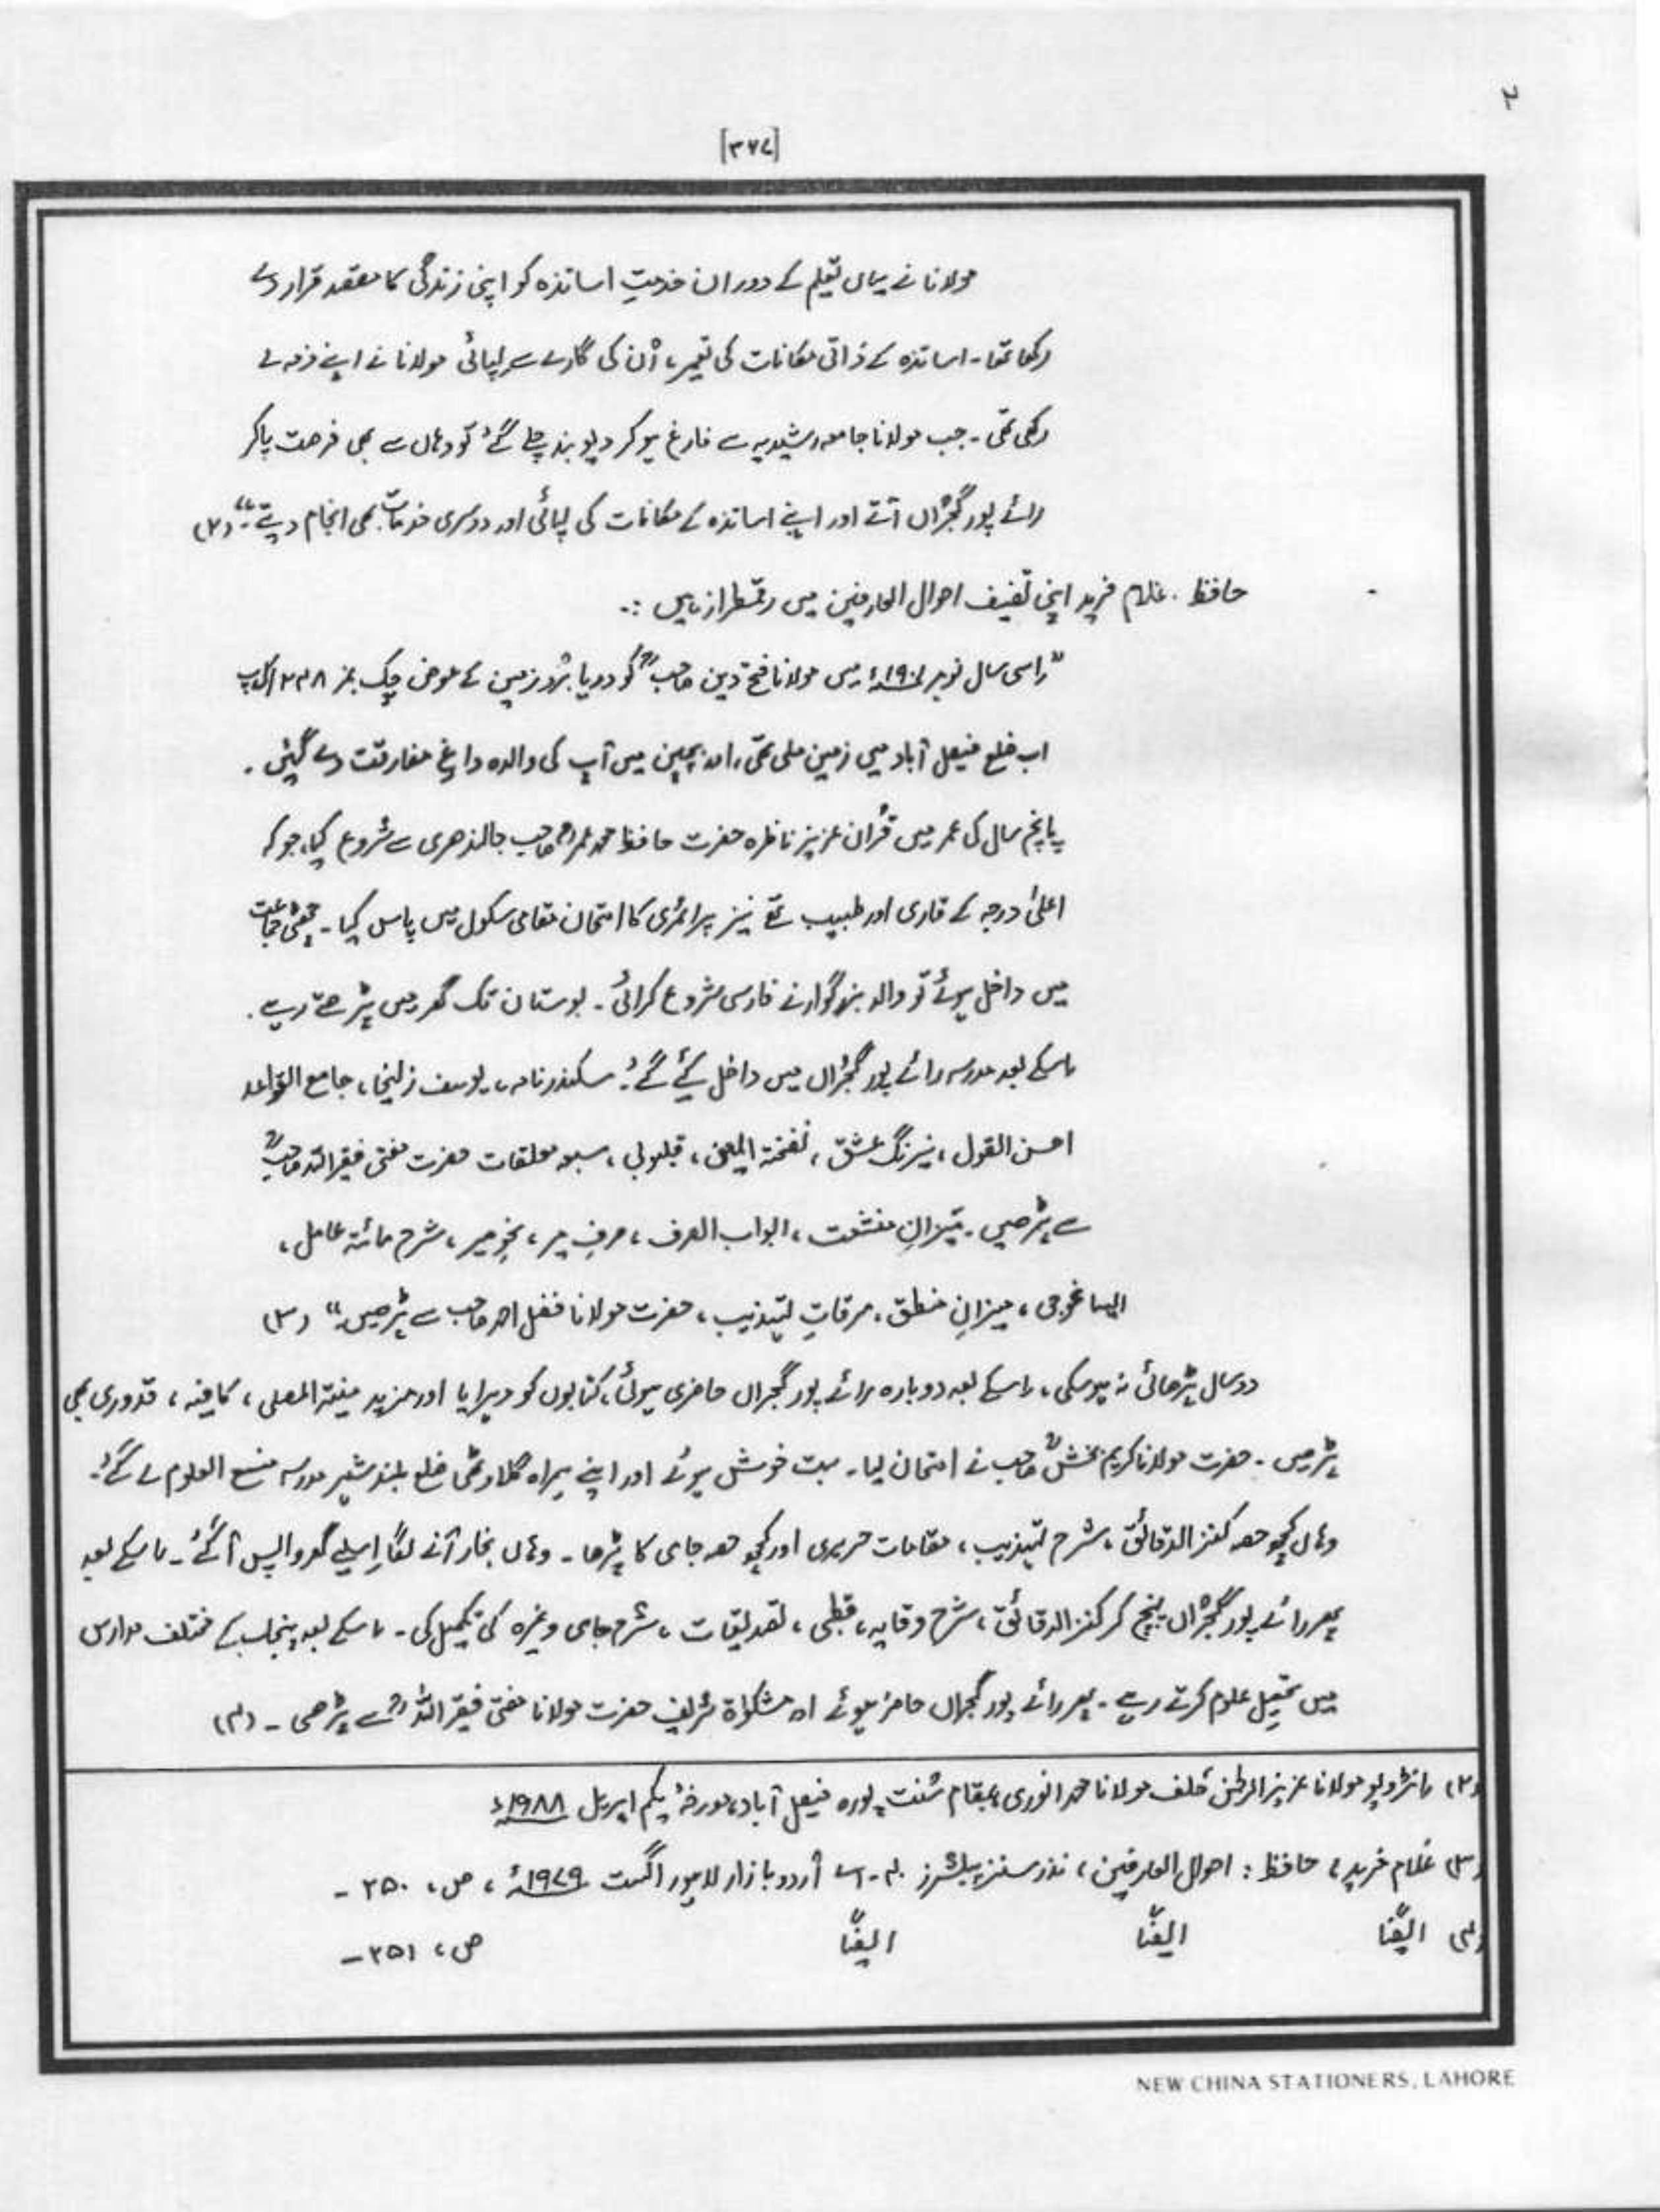 ۲
[۳۷۷]
مولانا نے یہاں تعلیم کے دوران خدمتِ اساتذہ کو اپنی زندگی کا مقصد قرار دے
رکھا تھا۔ اساتذہ کے ذاتی مکانات کی تعمیر، اُن کی گارے سے لپائی مولانا نے اپنے ذمہ لے
رکھی تھی۔ جب مولانا جامعہ رشیدیہ سے فارغ ہو کر دیوبند چلے گئے تو وہاں سے بھی فرصت پا کر
رائے پور گجراں آتے اور اپنے اساتذہ کے مکانات کی لپائی اور دوسری خدمات بھی انجام دیتے۔“ (۲)
حافظ غلام فرید اپنی تصنیف احوال العارفین میں رقمطراز ہیں :۔
”اسی سال نومبر ۱۹۰۱ء میں مولانا فتح دین صاحبؒ کو دریا برد زمین کے عوض چک نمبر ۲۳۸
اب ضلع فیصل آباد میں زمین ملی تھی، اور بچپن میں آپ کی والدہ داغِ مفارقت دے گئیں۔
پانچ سال کی عمر میں قرآن عزیز ناظرہ حضرت حافظ محمد عمر صاحب جالندھری سے شروع کیا، جو کہ
اعلیٰ درجہ کے قاری اور طبیب تھے نیز پرائمری کا امتحان مقامی سکول میں پاس کیا۔ چھٹی جماعت
میں داخل ہوئے تو والد بزرگوار نے فارسی شروع کرائی۔ بوستان تک گھر میں پڑھتے رہے۔
اسکے بعد مدرسہ رائے پور گجراں میں داخل کیئے گئے۔ سکندر نامہ، یوسف زلیخا، جامع القواعد
احسن القول، نیرنگ عشق، نفحتہ الیمن، قلیوبی، سبعہ معلقات حضرت مفتی فقیر اللہ صاحبؒ
سے پڑھیں۔ میزانِ منشعت، ابواب الصرف، صرفِ میر، نحوِ میر، شرح مائتہ عامل،
ایساغوجی، میزانِ منطق، مرقات تہذیب، حضرت مولانا فضل احمد صاحب سے پڑھیں۔“ (۳)
دو سال پڑھائی نہ ہو سکی، اسکے بعد دوبارہ رائے پور گجراں حاضری ہوئی، کتابوں کو دہرایا اور مزید منیتہ المصلی، کافیہ، قدوری بھی
پڑھیں۔ حضرت مولانا کریم بخشؒ صاحب نے امتحان لیا۔ بہت خوش ہوئے اور اپنے ہمراہ گلاوٹھی ضلع بلند شہر مدرسہ منبع العلوم لے گئے۔
وہاں کچھ حصہ کنز الدقائق، شرح تہذیب، مقامات حریری اور کچھ حصہ جامی کا پڑھا۔ وہاں بخار آنے لگا اِسلیے گھر واپس آ گئے۔ اسکے بعد
پھر رائے پور گجراں پہنچ کر کنز الدقائق، شرح وقایہ، قطبی، تصدیقات، شرح جامی وغیرہ کی تکمیل کی۔ اسکے بعد پنجاب کے مختلف مدارس
میں تحصیلِ علوم کرتے رہے۔ پھر رائے پور گجراں حاضر ہوئے اور مشکوٰۃ شریف حضرت مولانا مفتی فقیر اللہؒ سے پڑھی۔ (۴)
(۲) انٹرویو مولانا عزیز الرحمٰن خلف مولانا محمد انوری، بمقام سُنت پورہ فیصل آباد، مورخہ یکم اپریل ۱۹۸۸ء
(۳) غلام فرید، حافظ : احوال العارفین، نذر سنز پبلشرز ۴۰۔اے اُردو بازار لاہور اگست ۱۹۷۹ء، ص، ۲۵۰۔
(۴) ایضًا ایضًا ایضًا ص، ۲۵۱۔
NEW CHINA STATIONERS, LAHORE